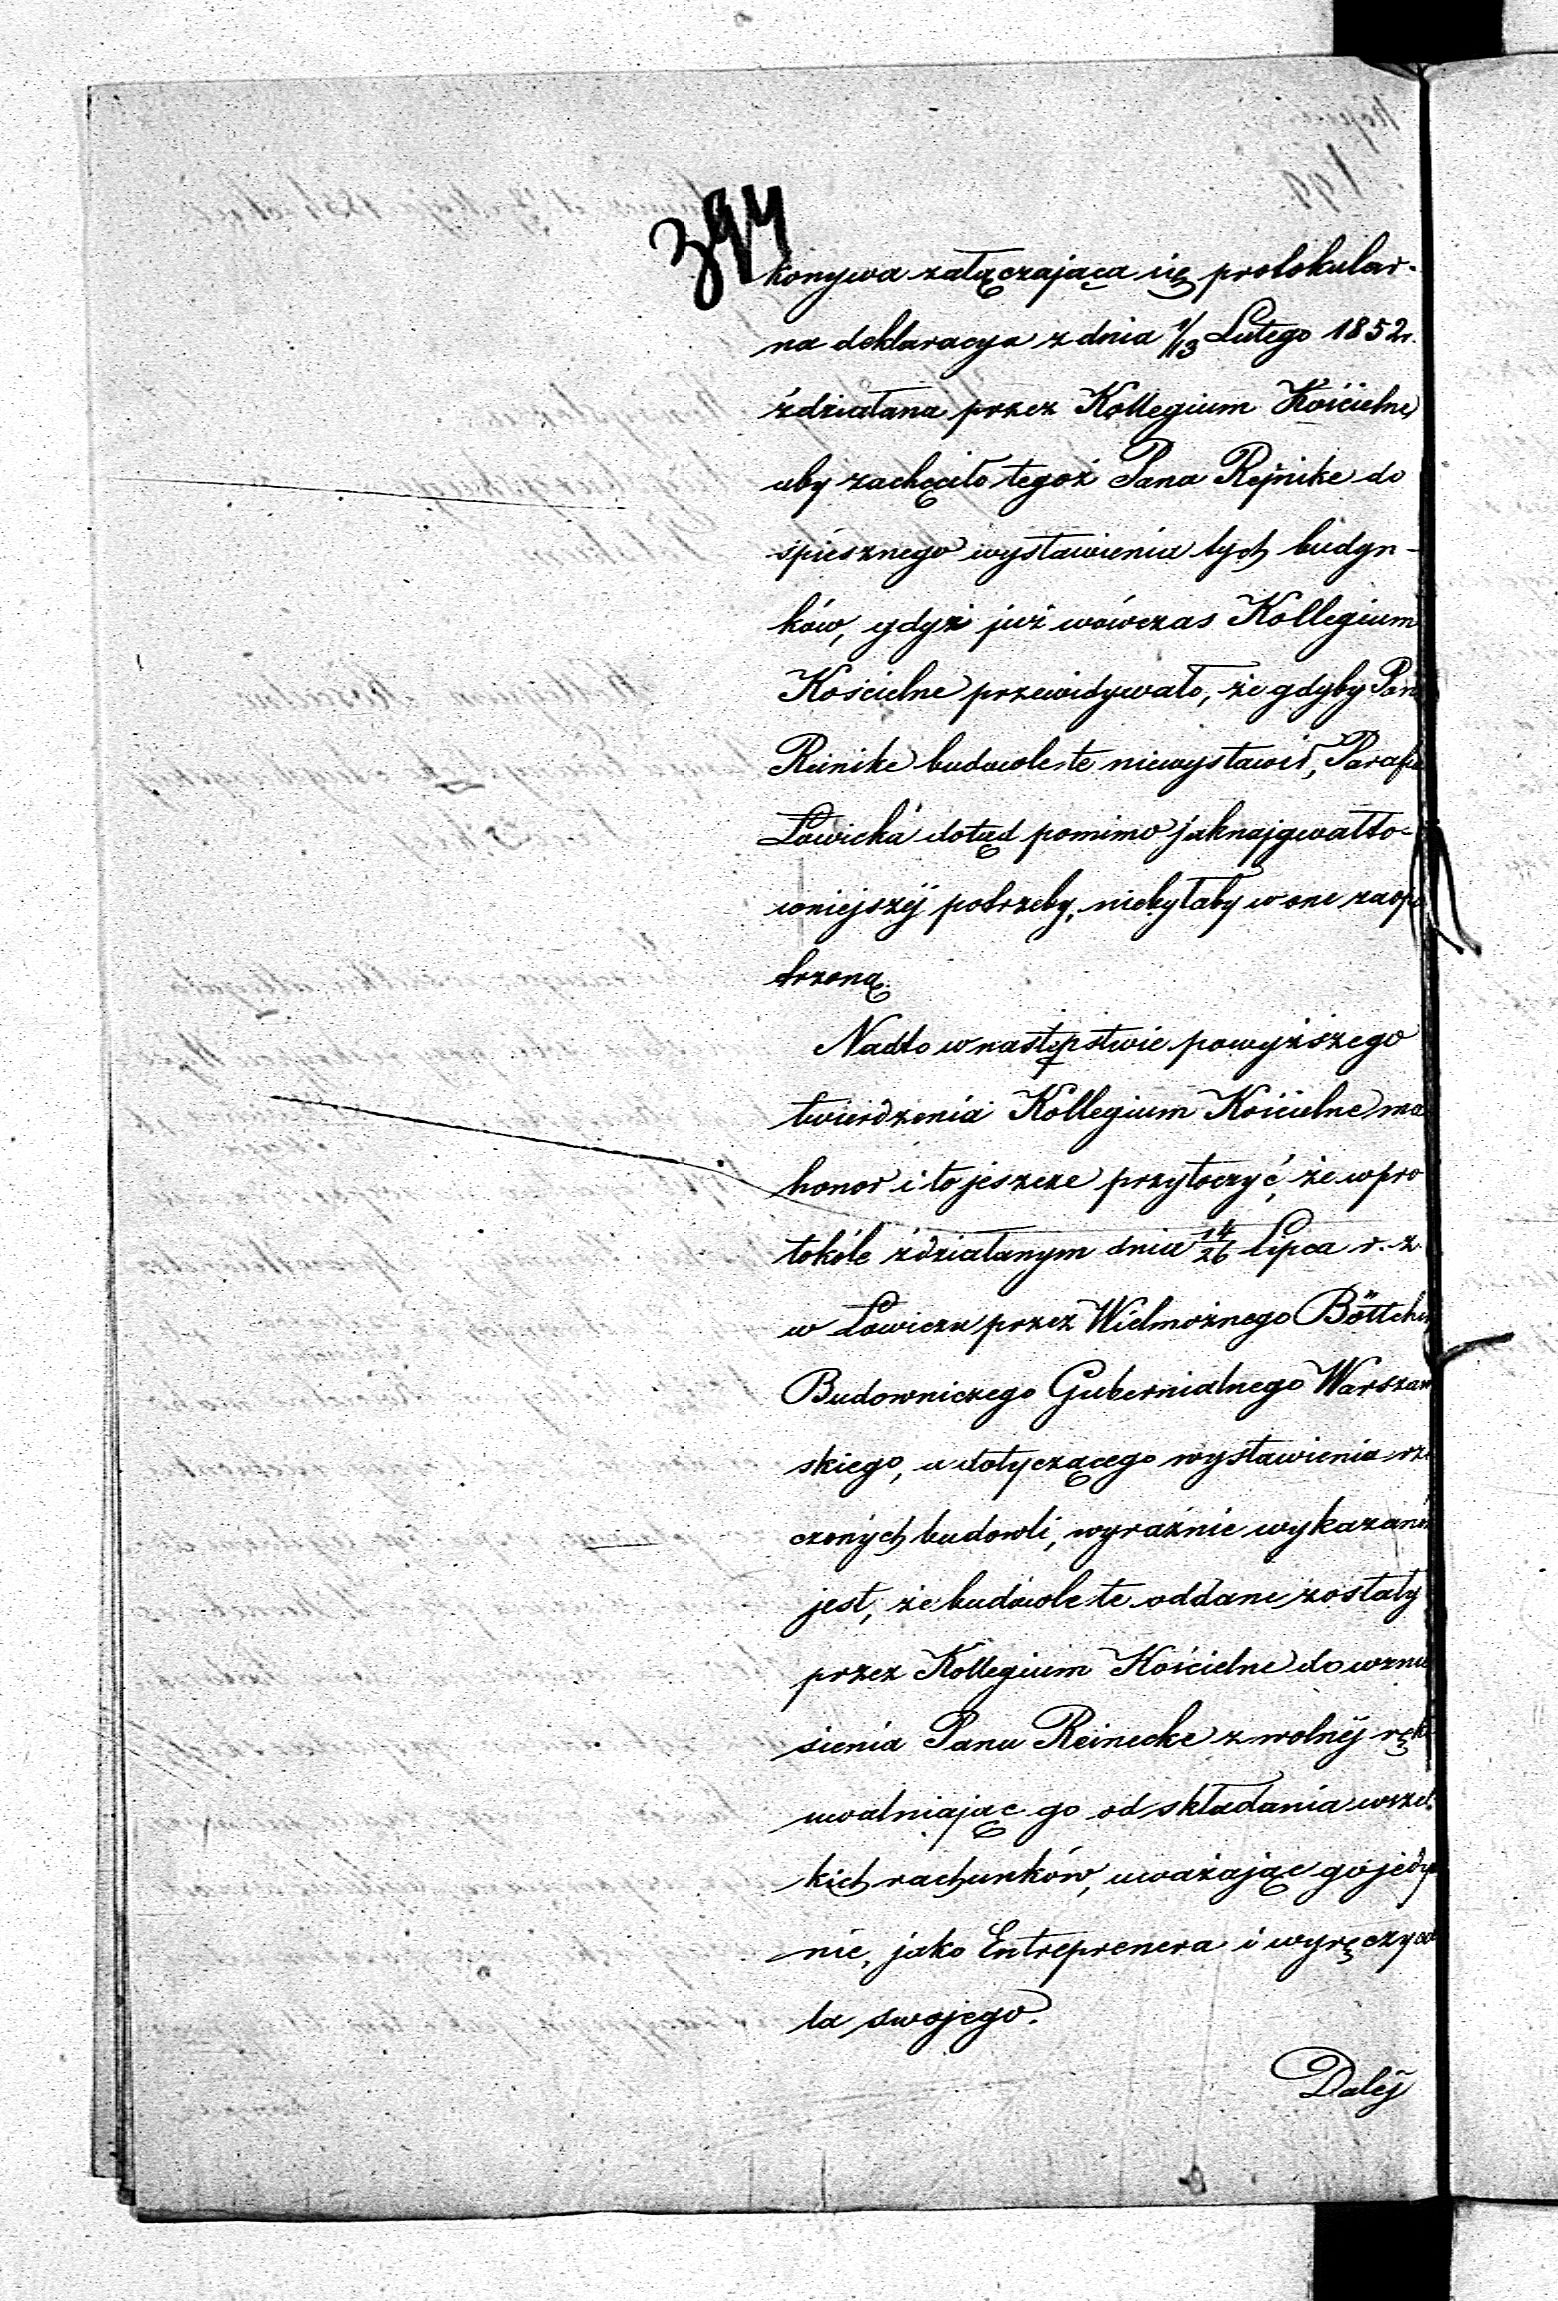 394
konywa załączająca się protokular-
na deklaracya z dnia 1/13 Lutego 1852r.
zdziałana przez Kollegium Kościelne
aby zachęciło tegoż Pana Rejnike do
śpiesznego wystawienia tych budyn-
ków, gdyż już wówczas Kollegium
Kościelne przewidywało, że gdyby Pan
Reinike budowle te niewystawił, Parafia
Łowicka dotąd pomimo jaknajgwałto-
wniejszéj potrzeby, niebyłaby w one zaopa
trzoną.
Nadto w następstwie powyższego
twierdzenia Kollegium Kościelne ma
honor i to jeszcze przytoczyć, że w pro
tokóle zdziałanym dnia 14/26 Lipca r. z.
w Łowiczu przez Wielmożnego Böttcher
Budowniczego Gubernialnego Warszaw
skiego, a dotyczącego wystawienia rze
czonych budowli, wyraźnie wykazaném
jest, że budowle te oddane zostały
przez Kollegium Kościelne do wznie
sienia Panu Reinecke z wolnéj ręki
uwalniając go od składania wszel
kich rachunków, uważając go jedy
nie, jako Entreprenera i wyręczycie
la swojego.
Daléj